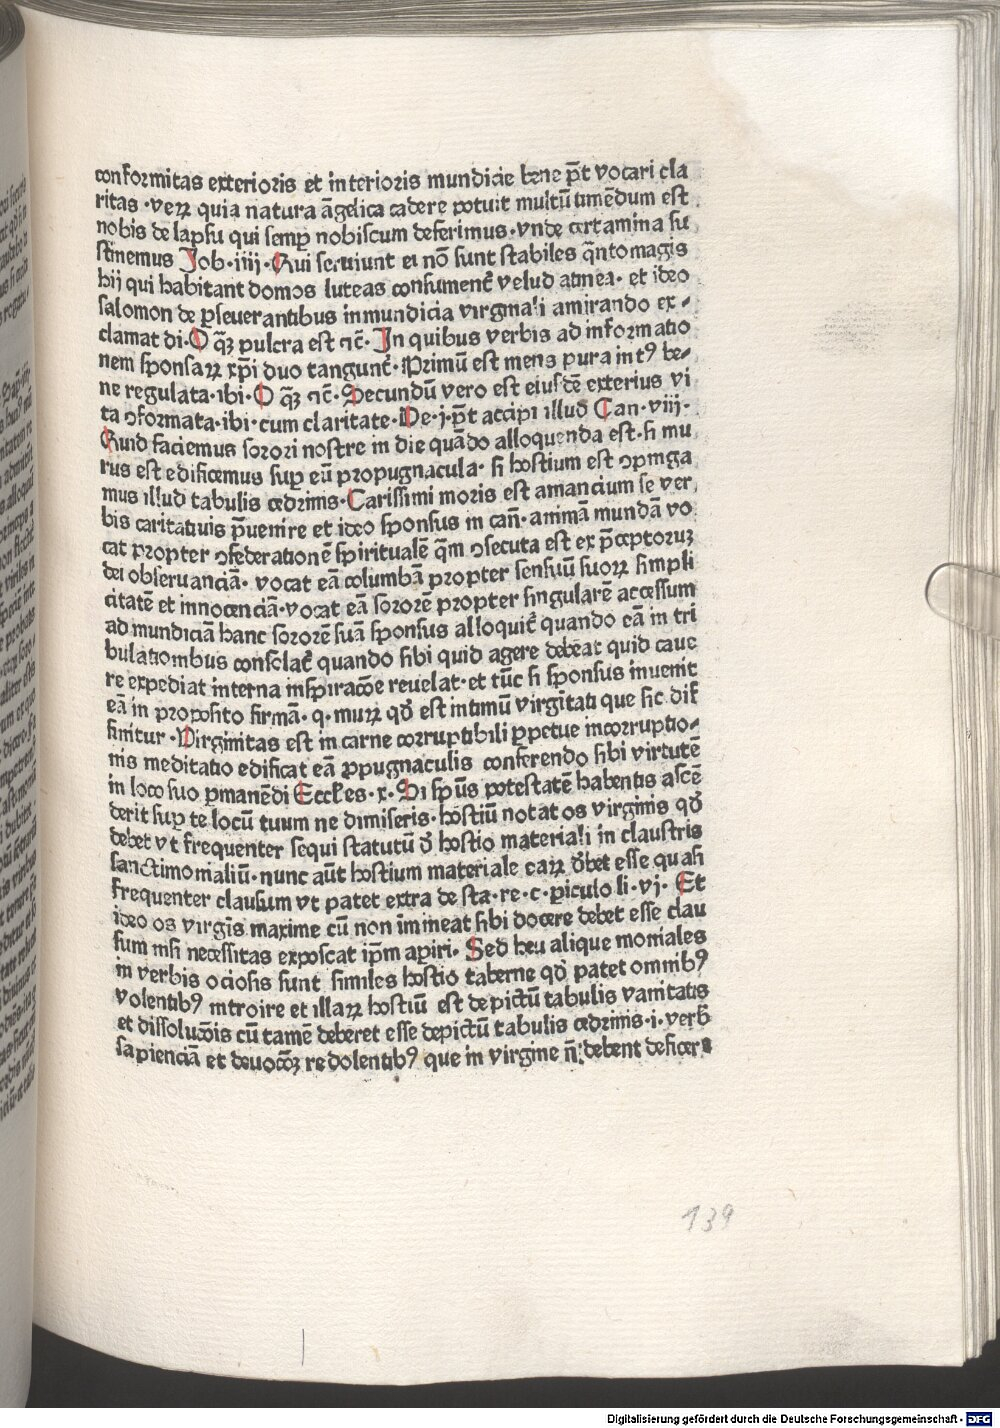 conformitas exterioris et interioris mundicie bene pōt vocari cla
ritas ·veꝝ quia natura āgelica cadere potuit multū timēdum est
nobis de lapsu qui semꝑ nobiscum deferimus· vnde certamina su
stinemus Job·iiij· Qui seruiunt ei nō sunt stabiles q̄ntomagis
hij qui habitant domos luteas consumenť velud atinea· et ideo
salomon de ꝑseuerantibus inmundicia virginali amirando ex-
clamat di· O q̄ꝫ pulcra est ⁊c̄· In quibus verbis ad informatio
nem sponsaꝝ xp̄i duo tangunť· Primū est mens pura intꝰ be-
ne regulata·ibi· O q̄ꝫ ⁊c̄· Secundū vero est eiusdē exterius vi
ta ɔformata·ibi·cum claritate· De·j·pōt accipi illud Can·viij·
Quid faciemus sorori nostre in die quādo alloquenda est· si mu
rus est edificemus suꝑ eū propugnacula· si hostium est ɔpinga
mus illud tabulis cedrinis· Carissimi moris est amancium se ver
bis caritatiuis p̄uenire et ideo sponsus in can̄·animā mundā vo
cat propter ɔfederationē spiritualē q̄m ɔsecuta est ex p̄ceptoruꝫ
dei obseruanciā· vocat eā columbā propter sensuū suoꝝ simpli
citatē et innocenciā·vocat eā sororē propter singularē accessum
ad mundiciā hanc sororē suā sponsus alloquiť quando eā in tri
bulationibus consolať quando sibi quid agere debeat quid caue
re expediat interna inspiracōe reuelat·et tūc si sponsus inuenit
eā in proposito firmā·q·muꝝ qđ est intimū virgitati que sic dif
finitur· Virginitas est in carne corruptibili ꝑpetue incorruptio-
nis meditatio edificat eā ꝓpugnaculis conferendo sibi virtutē
in loco suo ꝑmanēdi Eccles·x· Si sp̄us potestatē habentis ascē
derit suꝑ te locū tuum ne dimiseris· hostiū notat os virginis qđ
debet vt frequenter sequi statutū đ hostio materiali in claustris
sanctimonialiū· nunc aūt hostium materiale eaꝝ đbet esse quasi
frequenter clausum vt patet extra de sta·re·c·ꝑiculo li·vj· Et
ideo os virgīs maxime cū non īmineat sibi docere debet esse clau
sum nisi necessitas exposcat ip̄m aꝑiri· Sed heu alique moniales
in verbis ociosis sunt similes hostio taberne qđ patet omnibꝰ
volentibꝰ introire et illaꝝ hostiū est depictū tabulis vanitatis
et dissolucōis cū tamē deberet esse depictū tabulis cedrinis·i·verƀ
sapienciā et deuocōꝫ redolentibꝰ que in virgine n̄ debent deficere
139
Digitalisierung gefördert durch die Deutsche Forschungsgemeinschaft - DFG